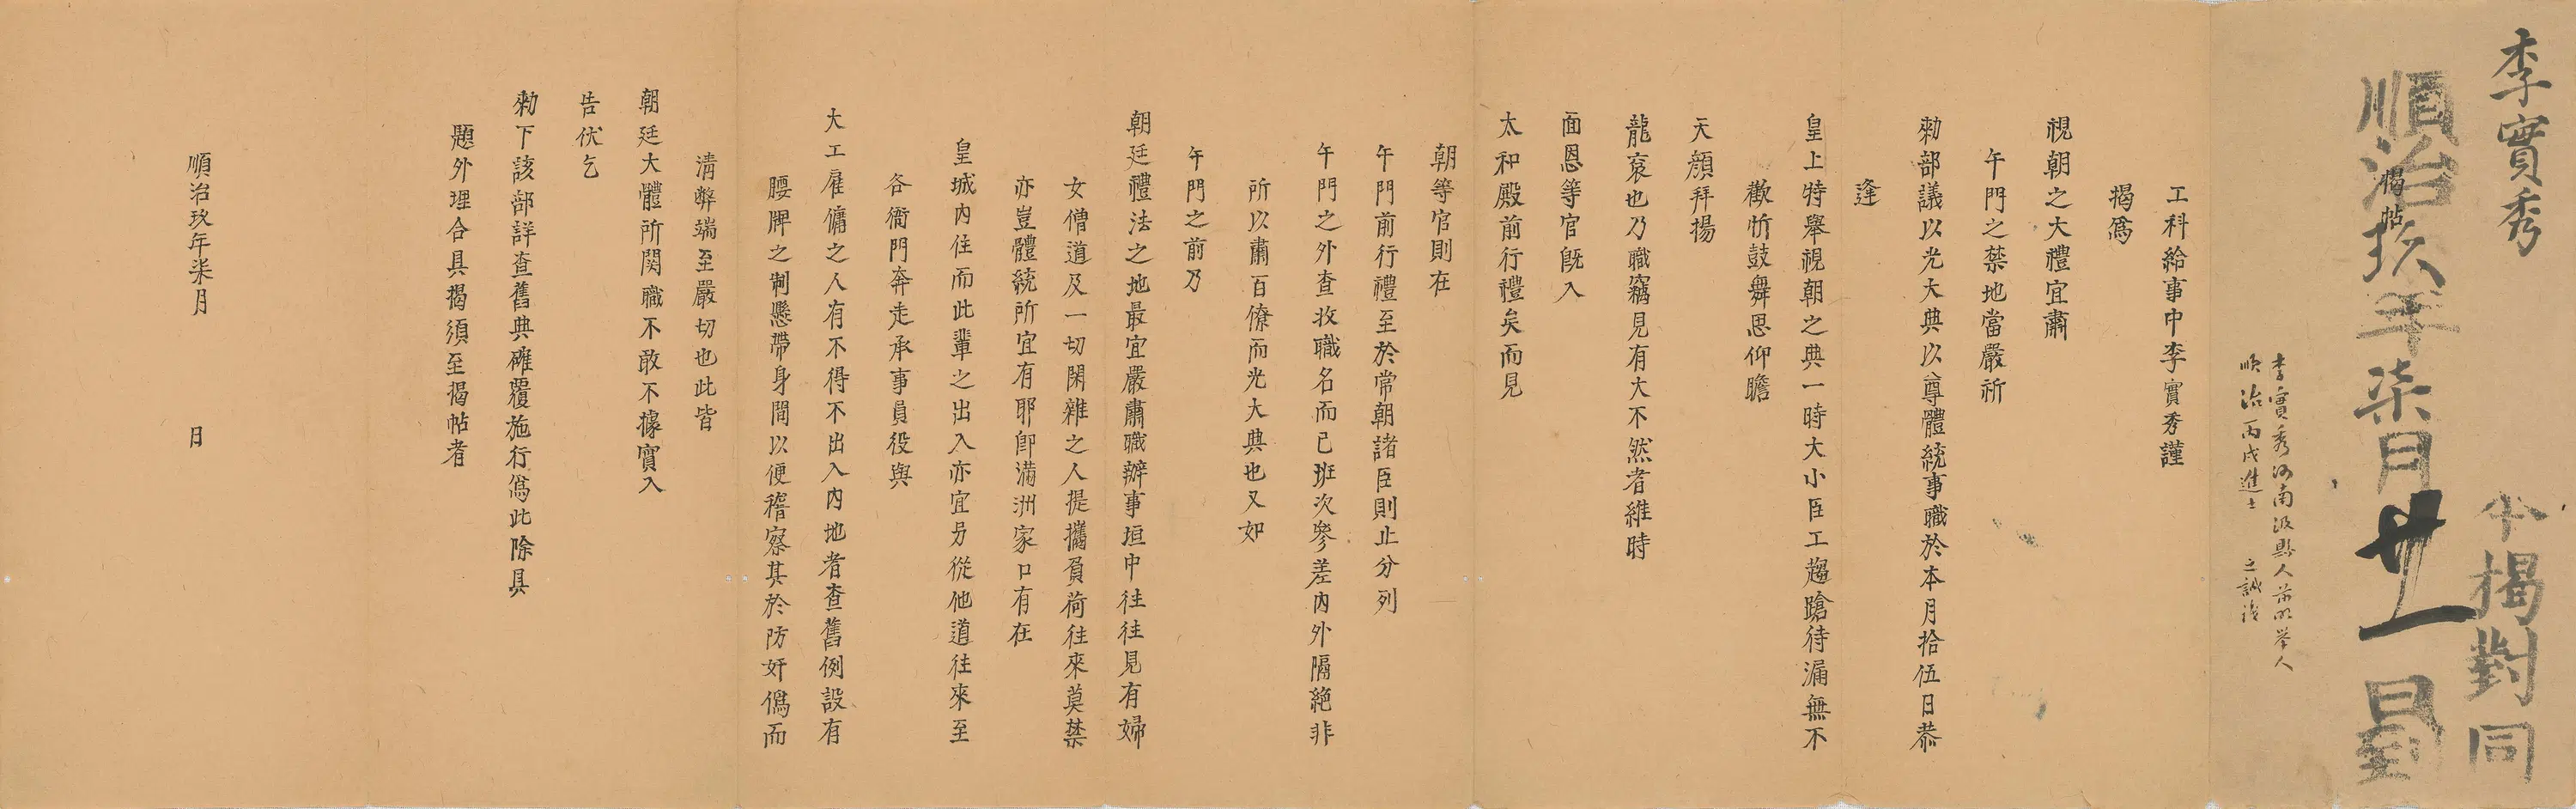 李實秀
本揭對同
順治玖年柒月廿一日到
揭帖
李實秀河南汲縣人前明舉人
順治丙戌進士
工科給事中李實秀謹
揭爲
視朝之大禮宜肅
午門之禁地當嚴祈
勑部議以光大典以尊體統事職於本月拾伍日恭
逢
皇上特舉視朝之典一時大小臣工趨蹌待漏無不
歡忻鼓舞思仰瞻
天顔拜揚
龍袞也乃職竊見有大不然者維時
面恩等官旣入
太和殿前行禮矣而見
朝等官則在
午門前行禮至於常朝諸臣則止分列
午門之外查收職名而已班次參差內外隔絶非
所以肅百僚而光大典也又如
午門之前乃
朝廷禮法之地最宜嚴肅職辦事垣中往往見有婦
女僧道及一切閑雜之人提攜負荷往來莫禁
亦豈體統所宜有耶卽滿洲家口有在
皇城內住而此輩之出入亦宜另從他道往來至
各衙門奔走承事員役與
大工雇傭之人有不得不出入內地者查舊例設有
腰牌之制懸帶身間以便稽察其於防奸僞而
清弊端至嚴切也此皆
朝廷大體所関職不敢不據實入
告伏乞
勑下該部詳查舊典確覆施行爲此除具
題外理合具揭須至揭帖者
順治玖年柒月　　日